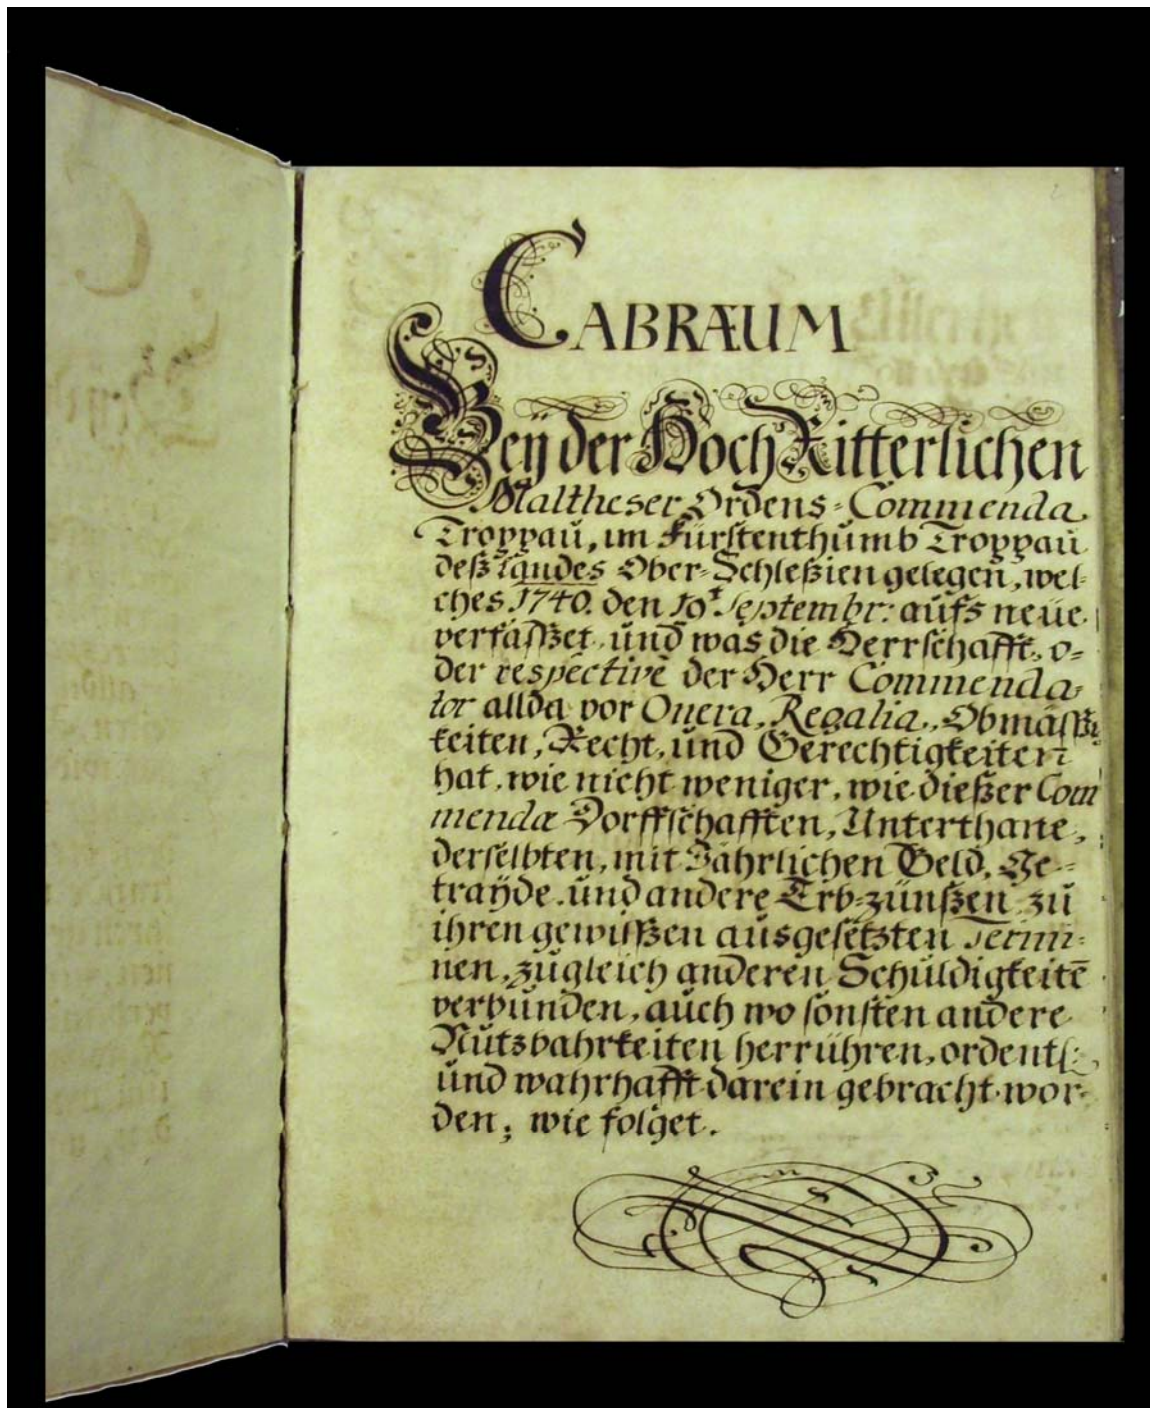 CABRÆUM
Beÿ der Hoch Ritterlichen
Maltheser Ordens-Commenda
Troppaŭ, im Fürstenthŭmb Troppaŭ
deß Landes Ober-Schleßien gelegen, wel-
ches 1740. den 10t Septembr: aŭfs neŭe
verfasszet, ŭnd was die Herrschafft, o-
der respectivè der Herr Commenda-
tor allda vor Onera, Regalia, Obmässi
keiten, Recht, ŭnd Gerechtigkeiten
hat, wie nicht weniger, wie dießer Com
mendæ Dorffschafften, Unterthane,
derselbten, mit Jährlichen Geld, Ge-
traÿde, ŭnd andere Erb-zünßen zŭ
ihren gewissen aŭsgesetzten Termi-
nen, zŭgleich anderen Schŭldigkeitē
verbŭnden, aŭch wo sonsten andere
Nŭtzbahrkeiten herrühren, ordentl:
ŭnd wahrhafft darein gebracht wor-
den; wie folget.